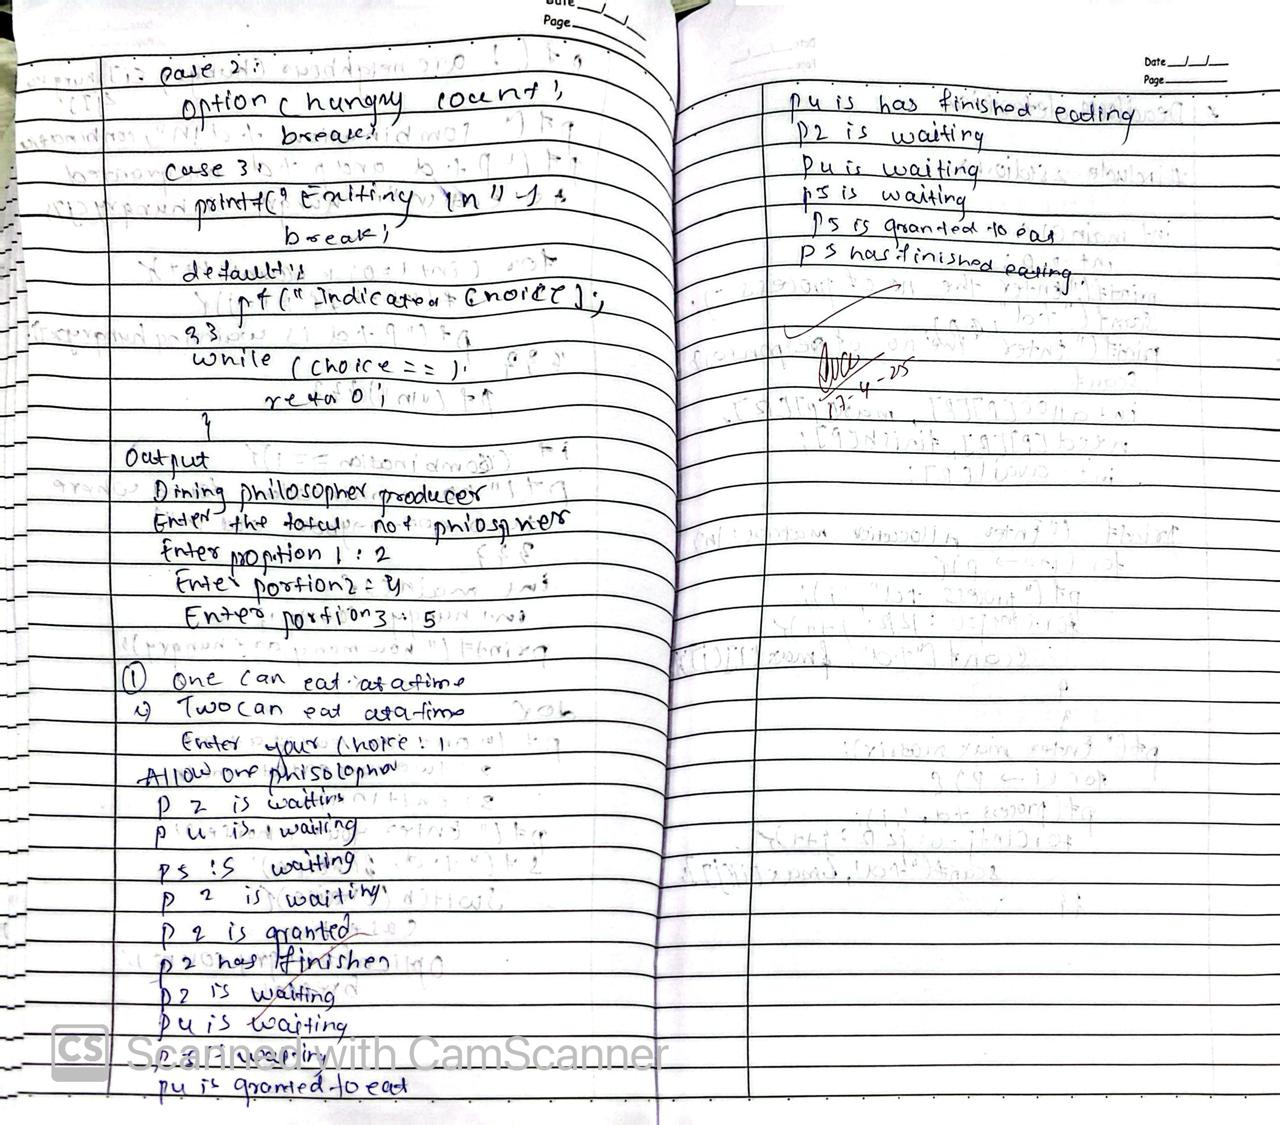 Date __/__/__
Page
case 2:
option ( hungry count ;
break;
case 3:
printf(" Exiting \n")
break;
default:
pf (" Indicated Choice ] ;
}}
while (choice == );
0;
}
Output
Dining philosopher producer
Enter the total no f phiospher
Enter 1 : 2
Enter portion2 = 4
Enter portion3 : 5
① One can eat at a time
ii) Two can eat at a time
Enter your choice : 1
Allow one
p 2 is waiting
p 4 is waiting
p5 is waiting
p 2 is waiting
p 2 is granted
p2 has finished
p2 is waiting
p4 is waiting
p5 is waiting
p4 is granted to eat
CS Scanned with CamScanner
Date __/__/__
Page
p4 is has finished eading
p2 is waiting
p4 is waiting
p5 is waiting
p5 is granted to eat
p5 has finished eating
17-4-25